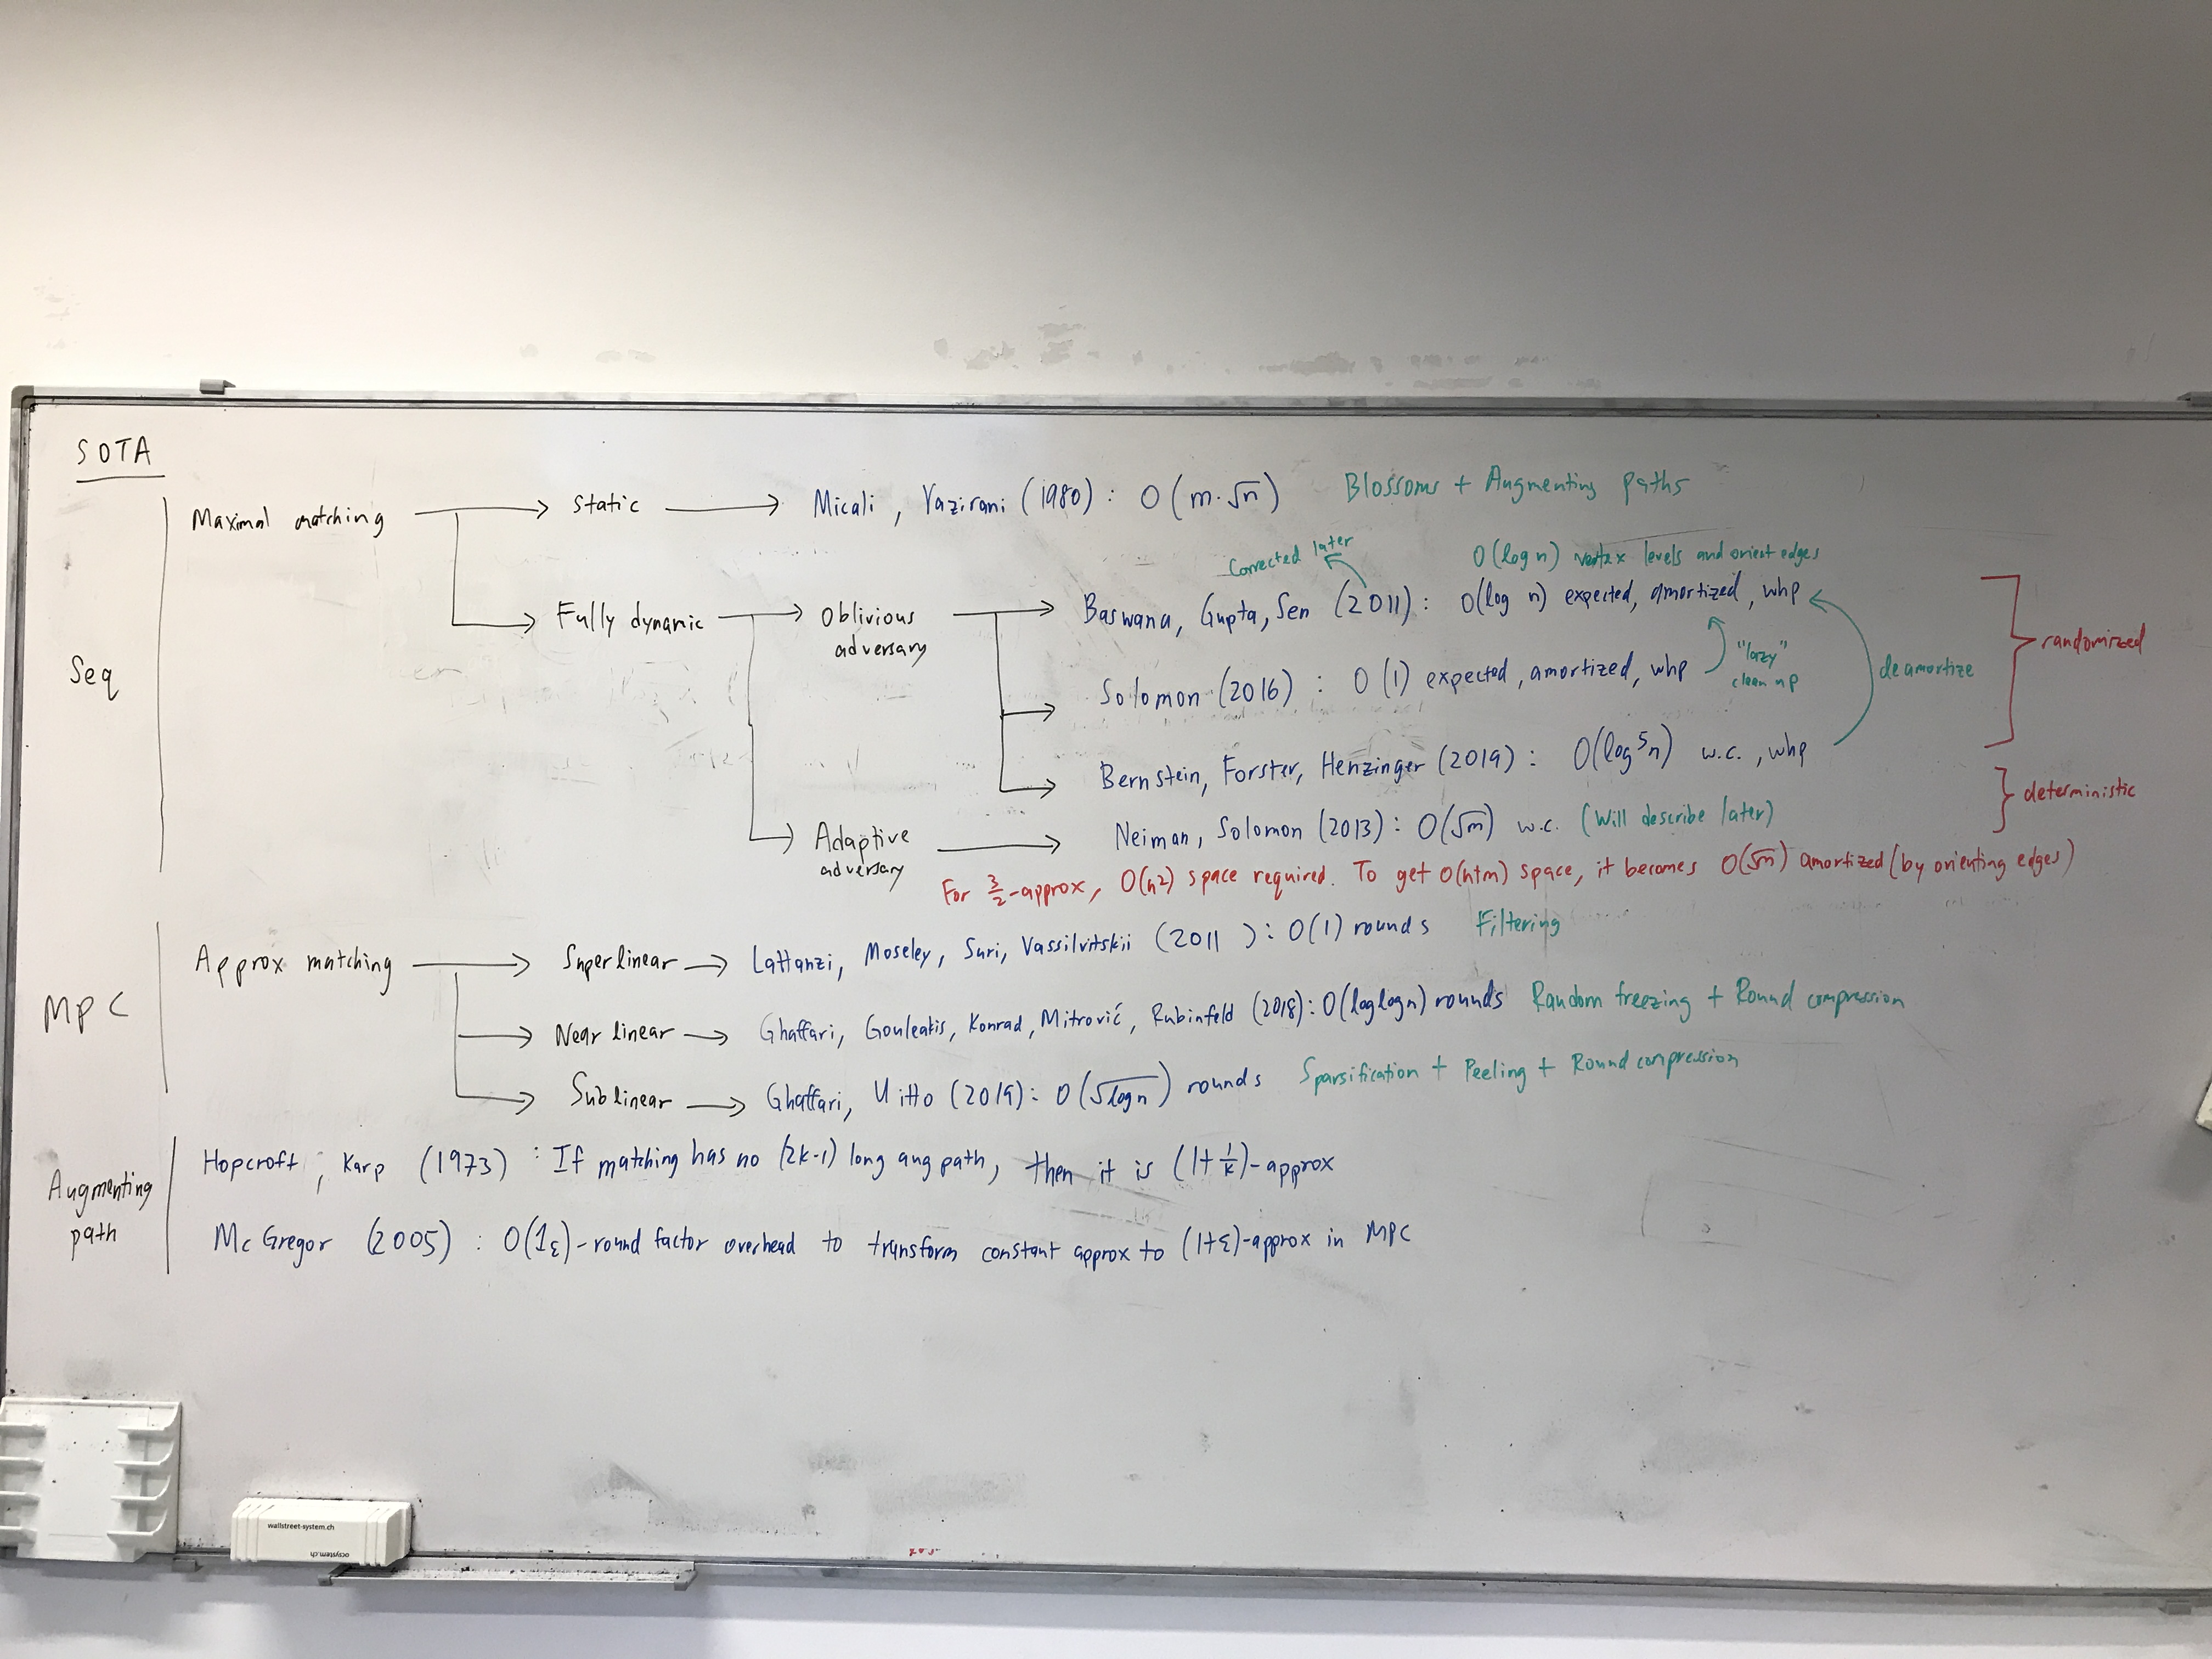 SOTA
Seq
Maximal matching → static → Micali, Vazirani (1980): O(m·√n) Blossoms + Augmenting paths
Corrected later
O(log n) vertex levels and orient edges
Fully dynamic → Oblivious adversary → Baswana, Gupta, Sen (2011): O(log n) expected, amortized, whp
"lazy" clean up
deamortize
randomized
Solomon (2016): O(1) expected, amortized, whp
Bernstein, Forster, Henzinger (2019): O(log⁵n) w.c., whp
deterministic
Adaptive adversary → Neiman, Solomon (2013): O(√m) w.c. (Will describe later)
For 3/2-approx, O(n²) space required. To get O(n+m) space, it becomes O(√m) amortized (by orienting edges)
MPC
Approx matching → Superlinear → Lattanzi, Moseley, Suri, Vassilvitskii (2011): O(1) rounds Filtering
Near linear → Ghaffari, Gouleakis, Konrad, Mitrović, Rubinfeld (2018): O(loglogn) rounds Random freezing + Round compression
Sublinear → Ghaffari, Uitto (2019): O(√logn) rounds Sparsification + Peeling + Round compression
Augmenting path
Hopcroft, Karp (1973): If matching has no (2k-1) long aug path, then it is (1+1/k)-approx
McGregor (2005): O(1ε)-round factor overhead to transform constant approx to (1+ε)-approx in MPC
wallstreet-system.ch
ocsystem.ch